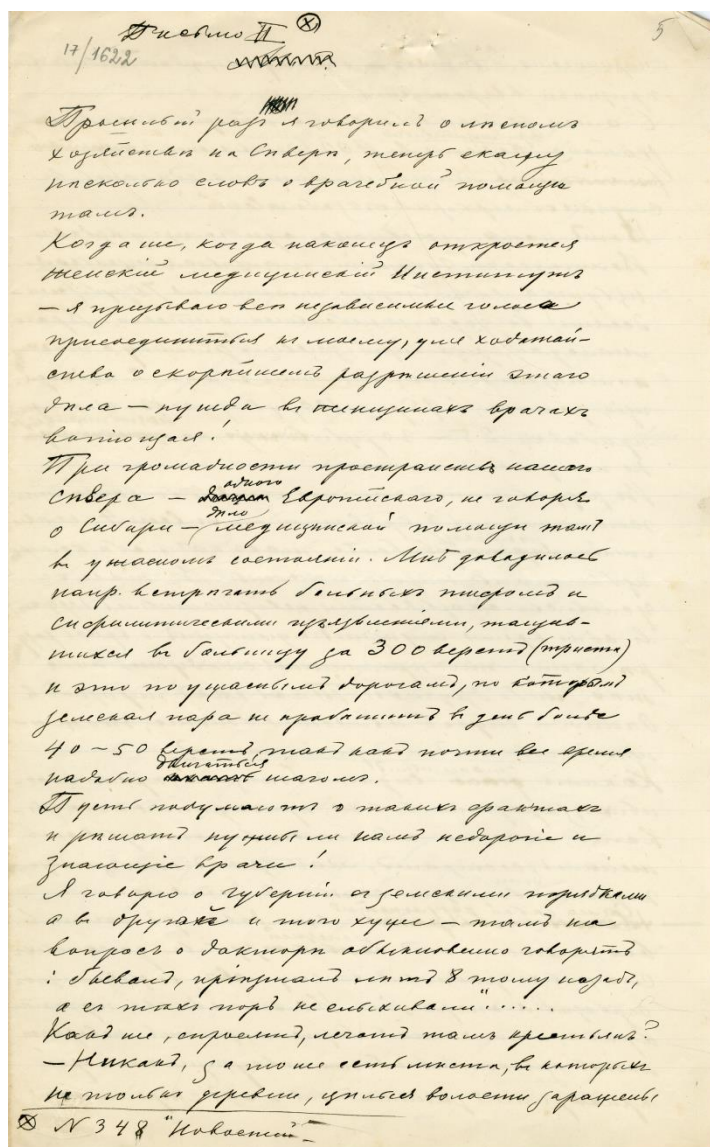 Письмо II ⊗
5
17/1622
Прошлый разъ я говорилъ о лѣсномъ
хозяйствѣ на Сѣверѣ, теперь скажу
нѣсколько словъ о врачебной помощи
тамъ.
Когда же, когда наконецъ откроется
женскій медицинскій Институтъ
— я призываю всѣ независимые голоса
присоединиться къ моему, для ходатай-
ства о скорѣйшемъ разрѣшеніи этаго
дѣла — нужда въ женщинахъ врачахъ
вопіющая!
При громадности пространствъ нашего
одного
Сѣвера — Европейскаго, не говоря
дѣло
о Сибири — медицинской помощи тамъ
въ ужасномъ состояніи. Мнѣ доводилось
напр. встрѣчать больныхъ тифомъ и
сифилитическими изъязвленіями, тащив-
шихся въ больницу за 300 верстъ (триста)
и это по ужаснымъ дорогамъ, по которымъ
земская пара не пробѣжитъ въ день болѣе
40–50 верстъ, такъ какъ почти все время
двигаться
надобно шагомъ.
Пусть подумаютъ о такихъ фактахъ
и рѣшатъ нужны ли намъ недорогіе и
знающіе врачи!
Я говорю о губерніи съ земскими порядками
а въ другихъ и того хуже — тамъ на
вопросъ о докторѣ обыкновенно говорятъ
: бывалъ, пріѣзжалъ лѣтъ 8 тому назадъ,
а съ тѣхъ поръ не слыхивали".....
Какъ же, спросятъ, лечатъ тамъ крестьянъ?
— Никакъ, за то же есть мѣста, въ которыхъ
не только деревни, цѣлыя волости заражены
⊗ N 348 "Новостей"